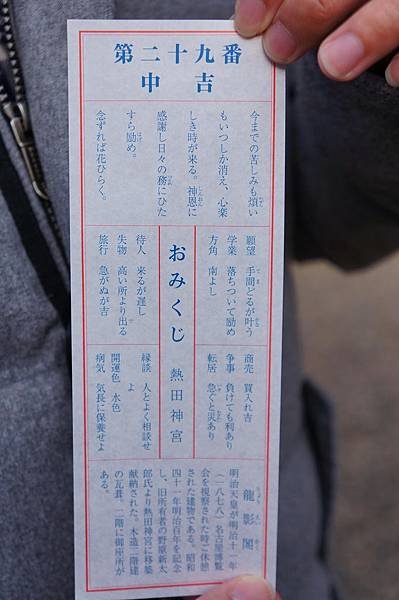 第二十九番
中吉
今までの苦しみも煩い
もいつしか消え、心楽
しき時が来る。神恩に
感謝し日々の務にひた
すら励め。
念ずれば花ひらく。
願望 手間どるが叶う
学業 落ちついて励め
方角 南よし
おみくじ 熱田神宮
待人 来るが遅し
失物 高い所より出る
旅行 急がぬが吉
商売 買入れ吉
争事 負けても利あり
転居 急ぐと災あり
縁談 人とよく相談せ
よ
開運色 水色
病気 気長に保養せよ
龍影閣
明治天皇が明治十一年
(一八七八)名古屋博覧
会を視察された時ご休憩
された建物である。昭和
四十一年明治百年を記念
し、旧所有者の野原新太
郎氏より熱田神宮に移築
献納された。木造二階建
の瓦葺、二階に御座所が
ある。